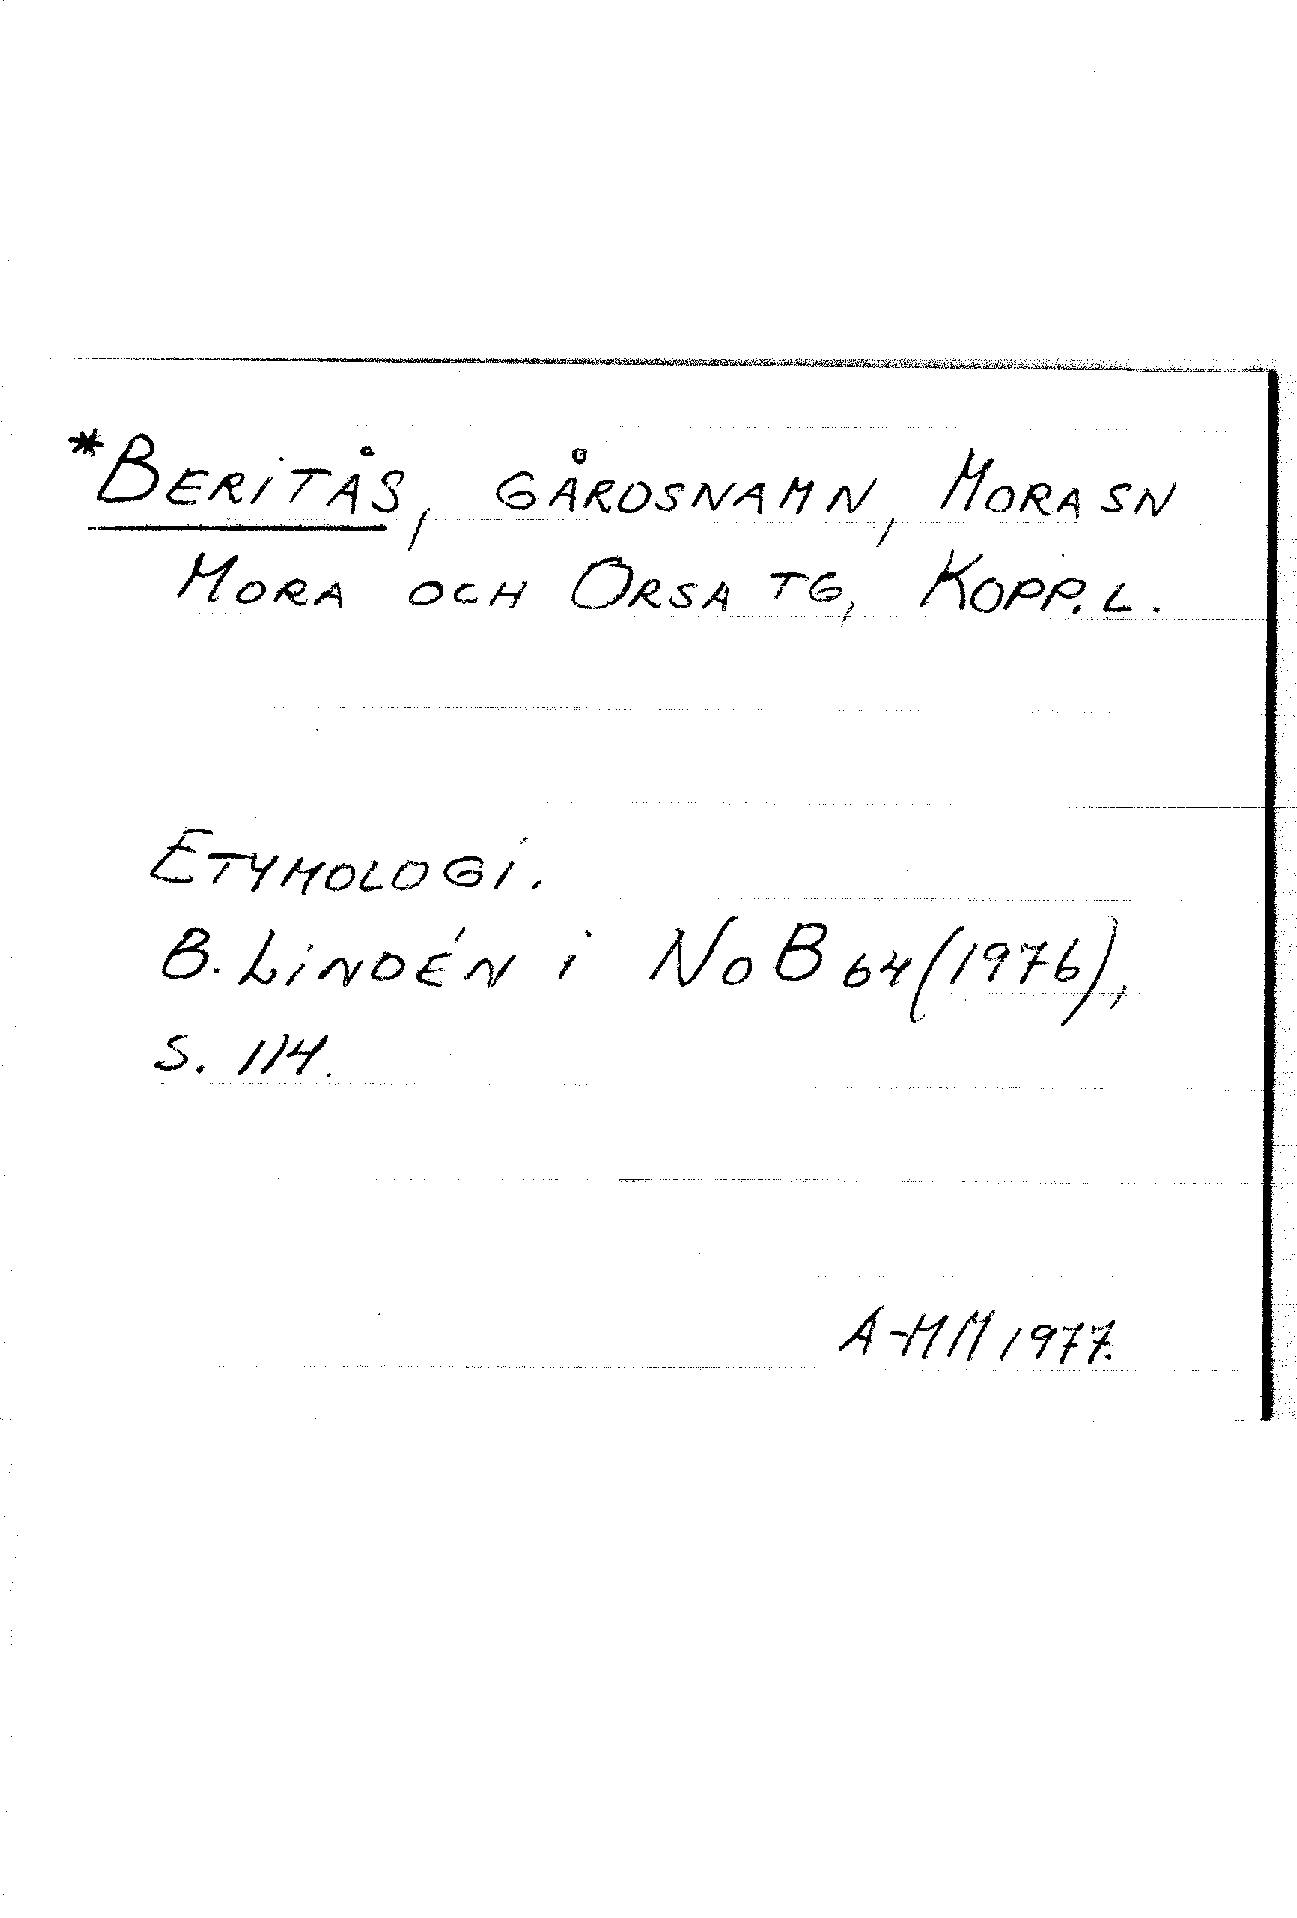 *BERITÅS, GÅRDSNAMN, MORA SN
MORA OCH ORSA TG, KOPP. L.
ETYMOLOGI.
B. LINDÉN I NOB 64 (1976),
S. 114.
A-MM 1977.